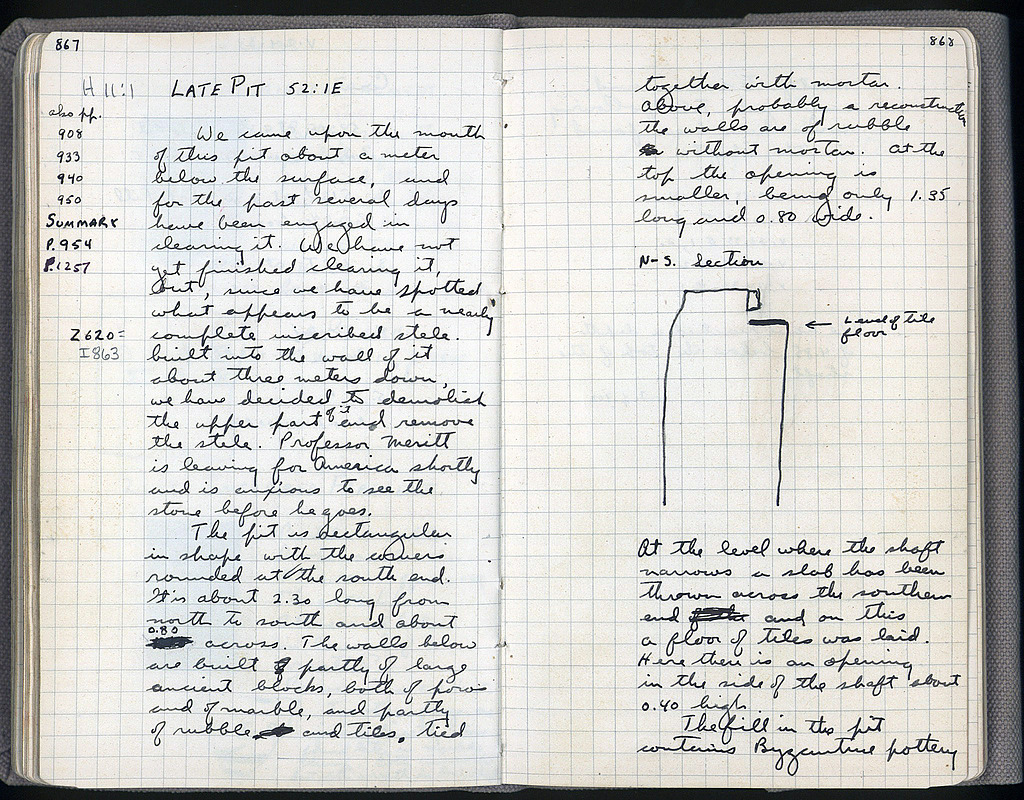 867
H 11:1 LATE PIT 52:1E
also pp.
908
933
940
950
SUMMARY
P. 954
P. 1257
Σ620 =
I 863
We came upon the mouth
of this pit about a meter
below the surface, and
for the past several days
have been engaged in
clearing it. We have not
yet finished clearing it,
but, since we have spotted
what appears to be a nearly
complete inscribed stele
built into the wall of it
about three meters down,
we have decided to demolish
the upper part of it and remove
the stele. Professor Meritt
is leaving for America shortly
and is anxious to see the
stone before he goes.
The pit is rectangular
in shape with the corners
rounded at the south end.
It is about 2.30 long from
north to south and about
0.80 across. The walls below
are built partly of large
ancient blocks, both of poros
and of marble, and partly
of rubble and tiles, tied
868
together with mortar.
Above, probably a reconstruction
the walls are of rubble
without mortar. At the
top the opening is
smaller, being only 1.35
long and 0.80 wide.
N-S. Section
Level of tile
floor
At the level where the shaft
narrows a slab has been
thrown across the southern
end and on this
a floor of tiles was laid.
Here there is an opening
in the side of the shaft about
0.40 high.
The fill in the pit
contains Byzantine pottery